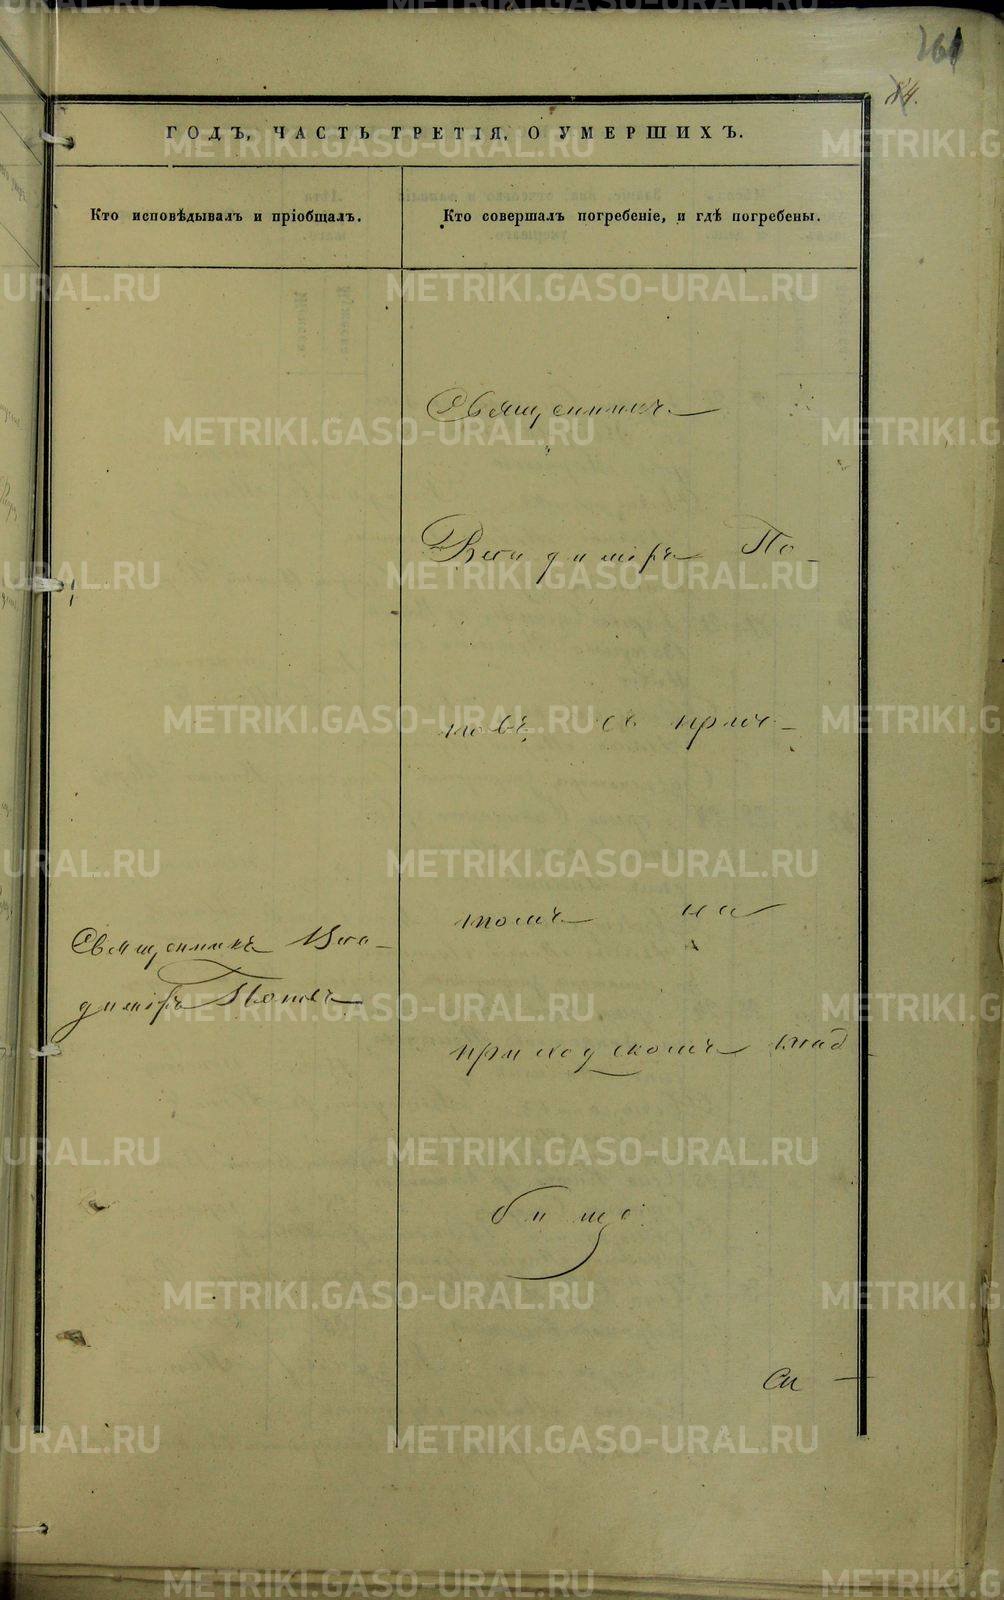 261
84.
ГОДЪ, ЧАСТЬ ТРЕТІЯ, О УМЕРШИХЪ.
Кто исповѣдывалъ и пріобщалъ.
Кто совершалъ погребеніе, и гдѣ погребены.
Священникъ Вла-
диміръ Поповъ
Священникъ
Владиміръ По-
повъ съ прич-
томъ на
приходскомъ клад
бищѣ.
METRIKI.GASO-URAL.RU